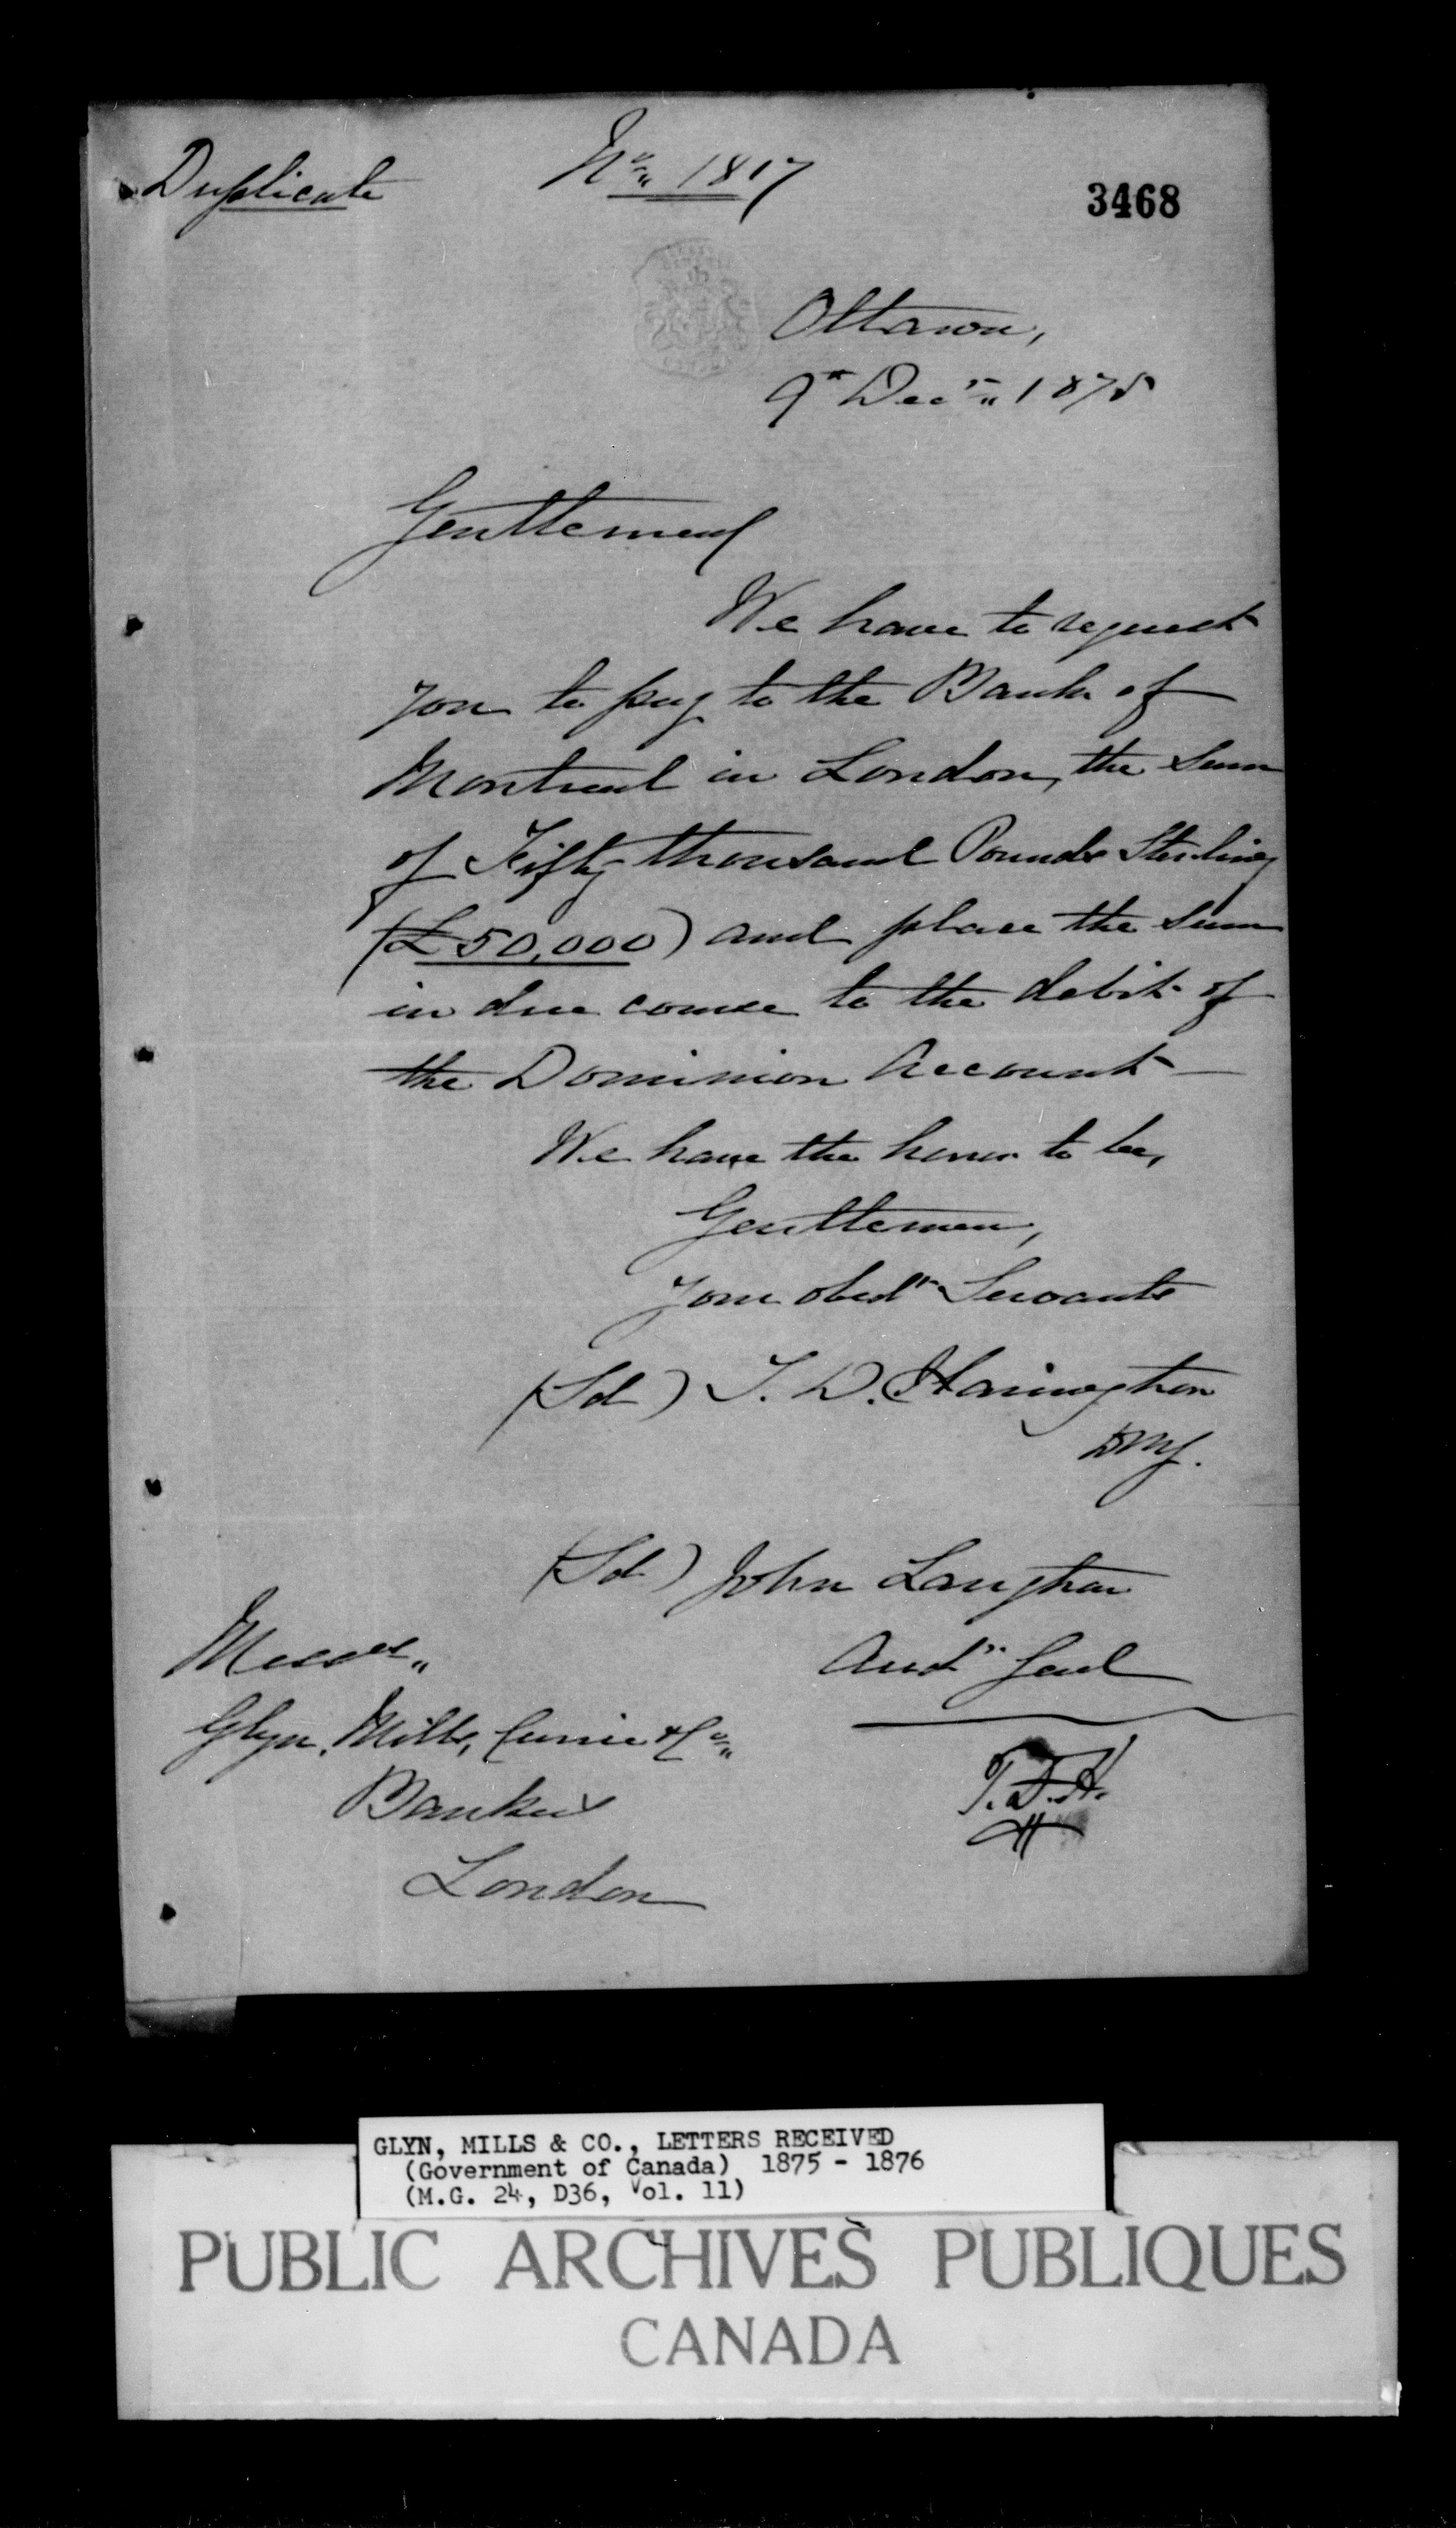 Duplicate
No. 1817
3468
Ottawa,
9th Decr. 1875
Gentlemen
We have to request
you to pay to the Bank of
Montreal in London, the Sum
of Fifty thousand Pounds Sterling
(£50,000) and place the sum
in due course to the debit of
the Dominion Account
We have the honor to be,
Gentlemen,
Your obedt Servants
(Sd) T. D. Harington
DMF.
(Sd) John Langton
Audr Genl
T.D.H.
Messrs.
Glyn, Mills, Currie & Co.
Bankers
London
GLYN, MILLS & CO., LETTERS RECEIVED
(Government of Canada) 1875 - 1876
(M.G. 24, D36, Vol. 11)
PUBLIC ARCHIVES PUBLIQUES
CANADA